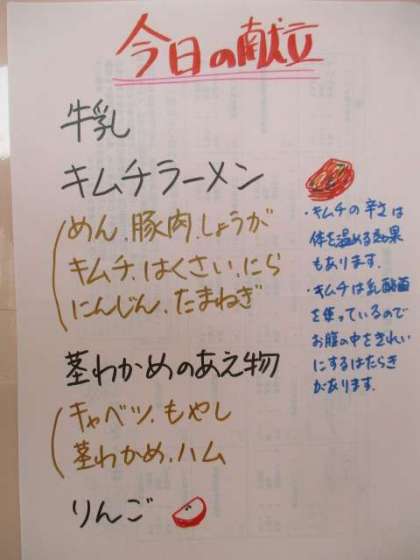 今日の献立
牛乳
キムチラーメン
めん.豚肉.しょうが
キムチ.はくさい.にら
にんじん.たまねぎ
・キムチの辛さは
体を温める効果
もあります.
・キムチは乳酸菌
を使っているので
お腹の中をきれい
にするはたらき
があります.
茎わかめのあえ物
キャベツ.もやし
茎わかめ.ハム
りんご